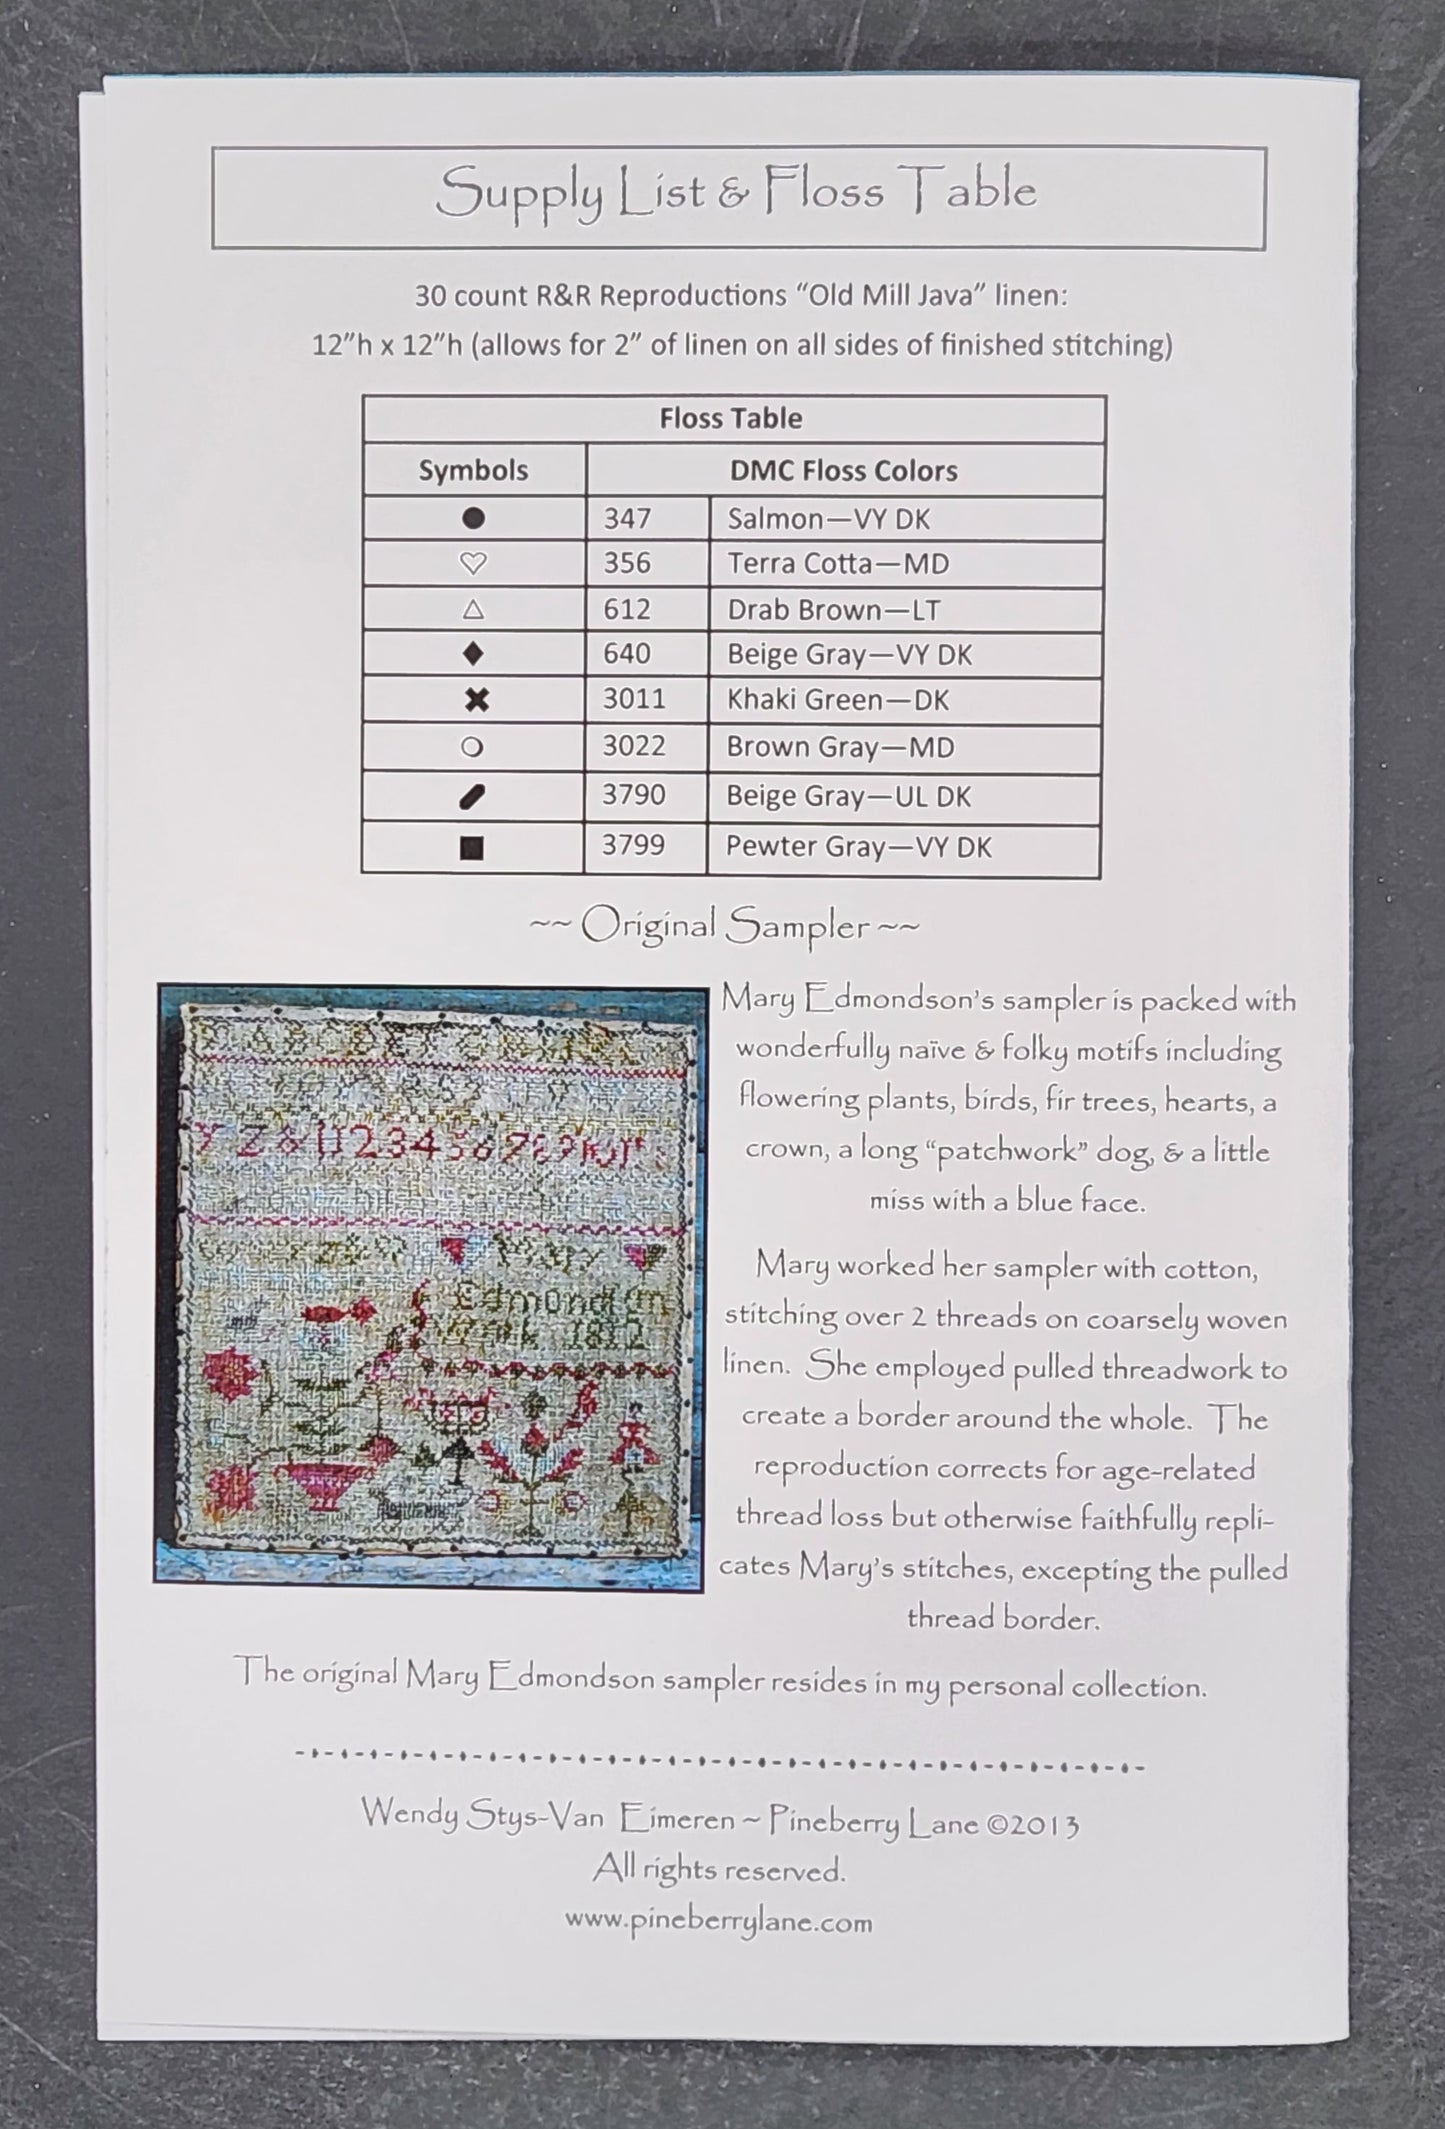 Supply List & Floss Table
30 count R&R Reproductions “Old Mill Java” linen:
12”h x 12”h (allows for 2” of linen on all sides of finished stitching)
Floss Table
Symbols DMC Floss Colors
● 347 Salmon—VY DK
♡ 356 Terra Cotta—MD
△ 612 Drab Brown—LT
♦ 640 Beige Gray—VY DK
✖ 3011 Khaki Green—DK
○ 3022 Brown Gray—MD
3790 Beige Gray—UL DK
■ 3799 Pewter Gray—VY DK
~~ Original Sampler ~~
Mary Edmondson’s sampler is packed with
wonderfully naïve & folky motifs including
flowering plants, birds, fir trees, hearts, a
crown, a long “patchwork” dog, & a little
miss with a blue face.
Mary worked her sampler with cotton,
stitching over 2 threads on coarsely woven
linen. She employed pulled threadwork to
create a border around the whole. The
reproduction corrects for age-related
thread loss but otherwise faithfully repli-
cates Mary’s stitches, excepting the pulled
thread border.
Y Z & 1 2 3 4 5 6 7 8 9
Mary
Edmondson
1812
The original Mary Edmondson sampler resides in my personal collection.
Wendy Stys-Van Eimeren ~ Pineberry Lane ©2013
All rights reserved.
www.pineberrylane.com